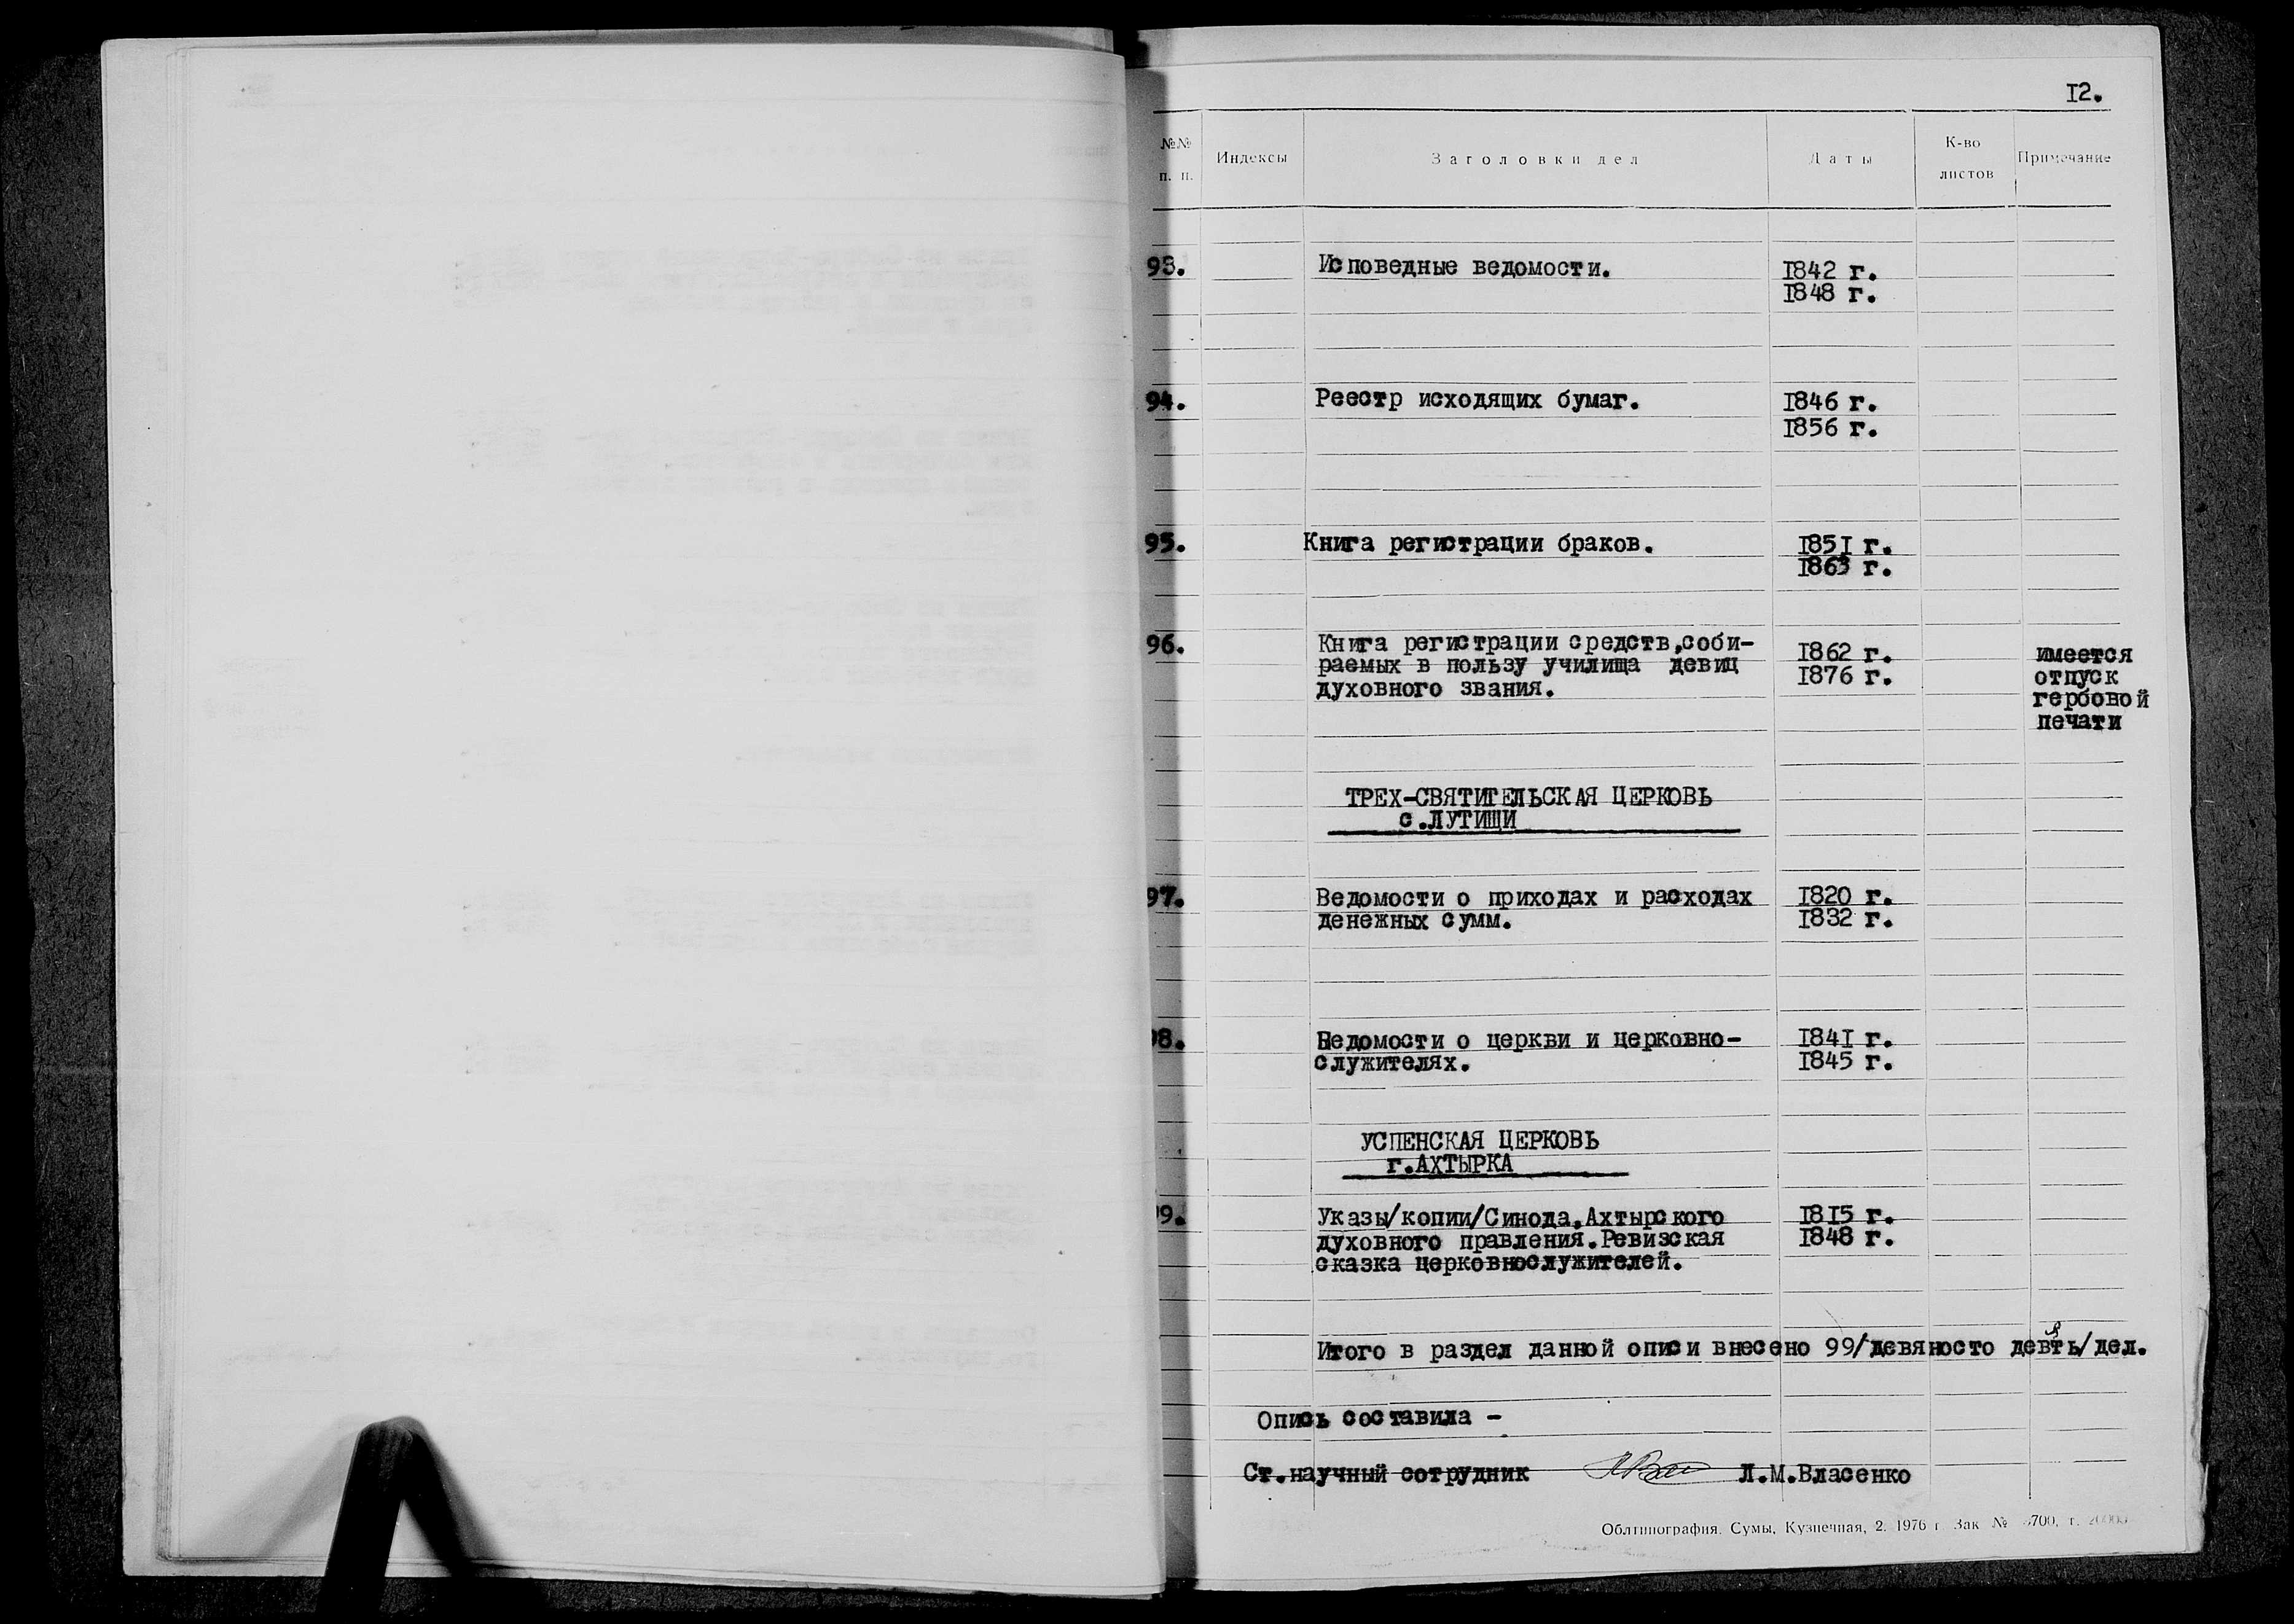 12.
№№ п. п. Индексы Заголовки дел Даты К-во листов Примечание
93. Исповедные ведомости. 1842 г.
1848 г.
94. Реестр исходящих бумаг. 1846 г.
1856 г.
95. Книга регистрации браков. 1851 г.
1863 г.
96. Книга регистрации средств,соби- 1862 г. имеется
раемых в пользу училища девиц 1876 г. отпуск
духовного звания. гербовой
печати
ТРЕХ-СВЯТИТЕЛЬСКАЯ ЦЕРКОВЬ
с.ЛУТИЩИ
97. Ведомости о приходах и расходах 1820 г.
денежных сумм. 1832 г.
98. Ведомости о церкви и церковно- 1841 г.
служителях. 1845 г.
УСПЕНСКАЯ ЦЕРКОВЬ
г.АХТЫРКА
99. Указы/копии/Синода,Ахтырского 1815 г.
духовного правления.Ревизская 1848 г.
сказка церковнослужителей.
Итого в раздел данной описи внесено 99/девяносто девять/дел.
Опись составила -
Ст.научный сотрудник Л.М.Власенко
Облтипография. Сумы, Кузнечная, 2. 1976 г Зак №